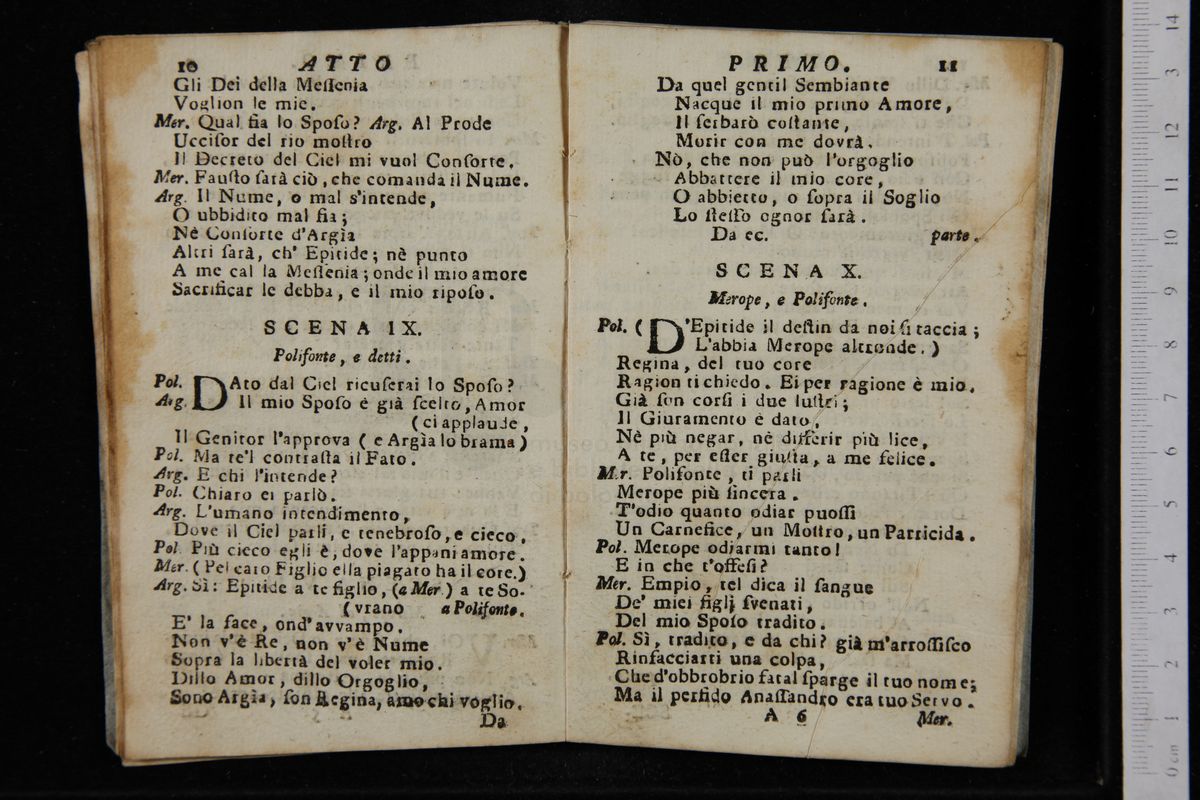 10 ATTO
Gli Dei della Meſſenia
Voglion le mie.
Mer. Qual ſia lo Spoſo? Arg. Al Prode
Ucciſor del rio moſtro
Il Decreto del Ciel mi vuol Conſorte.
Mer. Fauſto ſarà ciò, che comanda il Nume.
Arg. Il Nume, o mal s'intende,
O ubbidito mal ſia;
Nè Conſorte d'Argìa
Altri ſarà, ch' Epitide; nè punto
A me cal la Meſſenia; onde il mio amore
Sacrificar le debba, e il mio ripoſo.
SCENA IX.
Polifonte, e detti.
Pol. DAto dal Ciel ricuſerai lo Spoſo?
Arg. Il mio Spoſo è già ſcelto, Amor
(ci applaude,
Il Genitor l'approva ( e Argìa lo brama)
Pol. Ma te'l contraſta il Fato.
Arg. E chi l'intende?
Pol. Chiaro ei parlò.
Arg. L'umano intendimento,
Dove il Ciel parli, e tenebroſo, e cieco,
Pol. Più cieco egli è, dove l'appani amore.
Mer. ( Pel caro Figlio ella piagato ha il core.)
Arg. Sì: Epitide a te figlio, (a Mer.) a te So-
(vrano a Polifonte.
E' la face, ond' avvampo.
Non v'è Re, non v'è Nume
Sopra la libertà del voler mio.
Dillo Amor, dillo Orgoglio,
Sono Argìa, ſon Regina, amo chi voglio.
Da
PRIMO. 11
Da quel gentil Sembiante
Nacque il mio primo Amore,
Il ſerbarò coſtante,
Morir con me dovrà.
Nò, che non può l'orgoglio
Abbattere il mio core,
O abbietto, o ſopra il Soglio
Lo ſteſſo ognor ſarà.
Da ec. parte.
SCENA X.
Merope, e Polifonte.
Pol. ( D'Epitide il deſtin da noi ſi taccia;
L'abbia Merope altronde. )
Regina, del tuo core
Ragion ti chiedo. Ei per ragione è mio.
Già ſon corſi i due luſtri;
Il Giuramento è dato,
Nè più negar, nè differir più lice,
A te, per eſſer giuſta, a me felice.
Mer. Polifonte, ti parli
Merope più ſincera.
T'odio quanto odiar puoſſi
Un Carnefice, un Moſtro, un Parricida.
Pol. Merope odiarmi tanto!
E in che t'offeſi?
Mer. Empio, tel dica il ſangue
De' miei figlj ſvenati,
Del mio Spoſo tradito.
Pol. Sì, tradito, e da chi? già m'arroſſiſco
Rinfacciarti una colpa,
Che d'obbrobrio fatal ſparge il tuo nome;
Ma il perfido Anaſſandro era tuo Servo.
A 6 Mer.